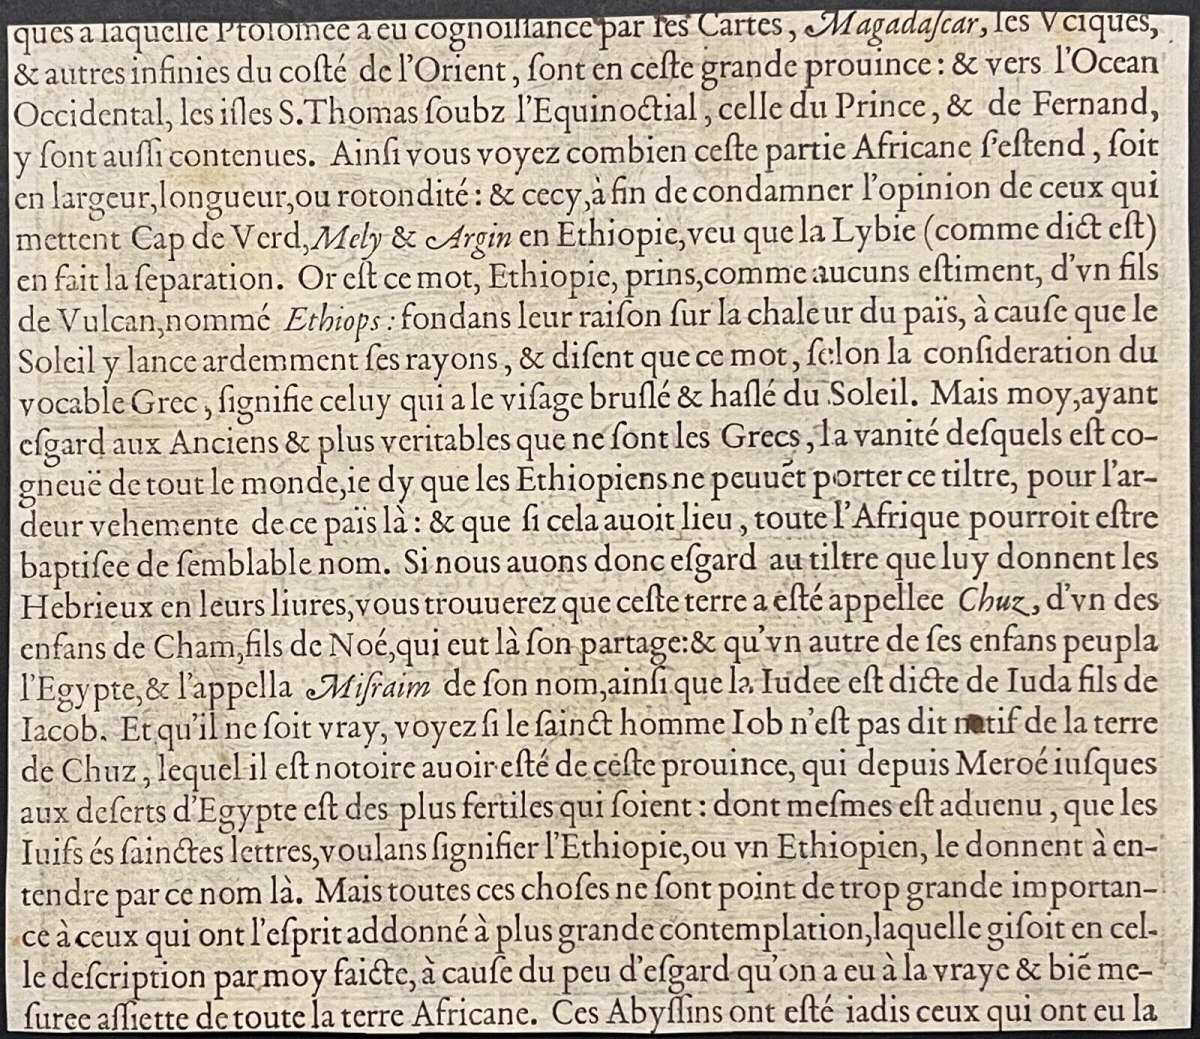 ques a laquelle Ptolomee a eu cognoiſſance par ſes Cartes, Magadaſcar, les Vciques,
& autres infinies du coſté de l'Orient, ſont en ceſte grande prouince: & vers l'Ocean
Occidental, les iſles S. Thomas ſoubz l'Equinoctial, celle du Prince, & de Fernand,
y ſont auſſi contenues. Ainſi vous voyez combien ceſte partie Africane ſ'eſtend, ſoit
en largeur, longueur, ou rotondité: & cecy, à fin de condamner l'opinion de ceux qui
mettent Cap de Verd, Mely & Argin en Ethiopie, veu que la Lybie (comme dict eſt)
en fait la ſeparation. Or eſt ce mot, Ethiopie, prins, comme aucuns eſtiment, d'vn fils
de Vulcan, nommé Ethiops: fondans leur raiſon ſur la chaleur du païs, à cauſe que le
Soleil y lance ardemment ſes rayons, & diſent que ce mot, ſelon la conſideration du
vocable Grec, ſignifie celuy qui a le viſage bruſlé & haſlé du Soleil. Mais moy, ayant
eſgard aux Anciens & plus veritables que ne ſont les Grecs, la vanité deſquels eſt co-
gneuë de tout le monde, ie dy que les Ethiopiens ne peuuẽt porter ce tiltre, pour l'ar-
deur vehemente de ce païs là: & que ſi cela auoit lieu, toute l'Afrique pourroit eſtre
baptiſee de ſemblable nom. Si nous auons donc eſgard au tiltre que luy donnent les
Hebrieux en leurs liures, vous trouuerez que ceſte terre a eſté appellee Chuz, d'vn des
enfans de Cham, fils de Noé, qui eut là ſon partage: & qu'vn autre de ſes enfans peupla
l'Egypte, & l'appella Miſraim de ſon nom, ainſi que la Iudee eſt dicte de Iuda fils de
Iacob. Et qu'il ne ſoit vray, voyez ſi le ſainct homme Iob n'eſt pas dit natif de la terre
de Chuz, lequel il eſt notoire auoir eſté de ceſte prouince, qui depuis Meroé iuſques
aux deſerts d'Egypte eſt des plus fertiles qui ſoient: dont meſmes eſt aduenu, que les
Iuifs és ſainctes lettres, voulans ſignifier l'Ethiopie, ou vn Ethiopien, le donnent à en-
tendre par ce nom là. Mais toutes ces choſes ne ſont point de trop grande importan-
ce à ceux qui ont l'eſprit addonné à plus grande contemplation, laquelle giſoit en cel-
le deſcription par moy faicte, à cauſe du peu d'eſgard qu'on a eu à la vraye & biẽ me-
ſuree aſſiette de toute la terre Africane. Ces Abyſſins ont eſté iadis ceux qui ont eu la